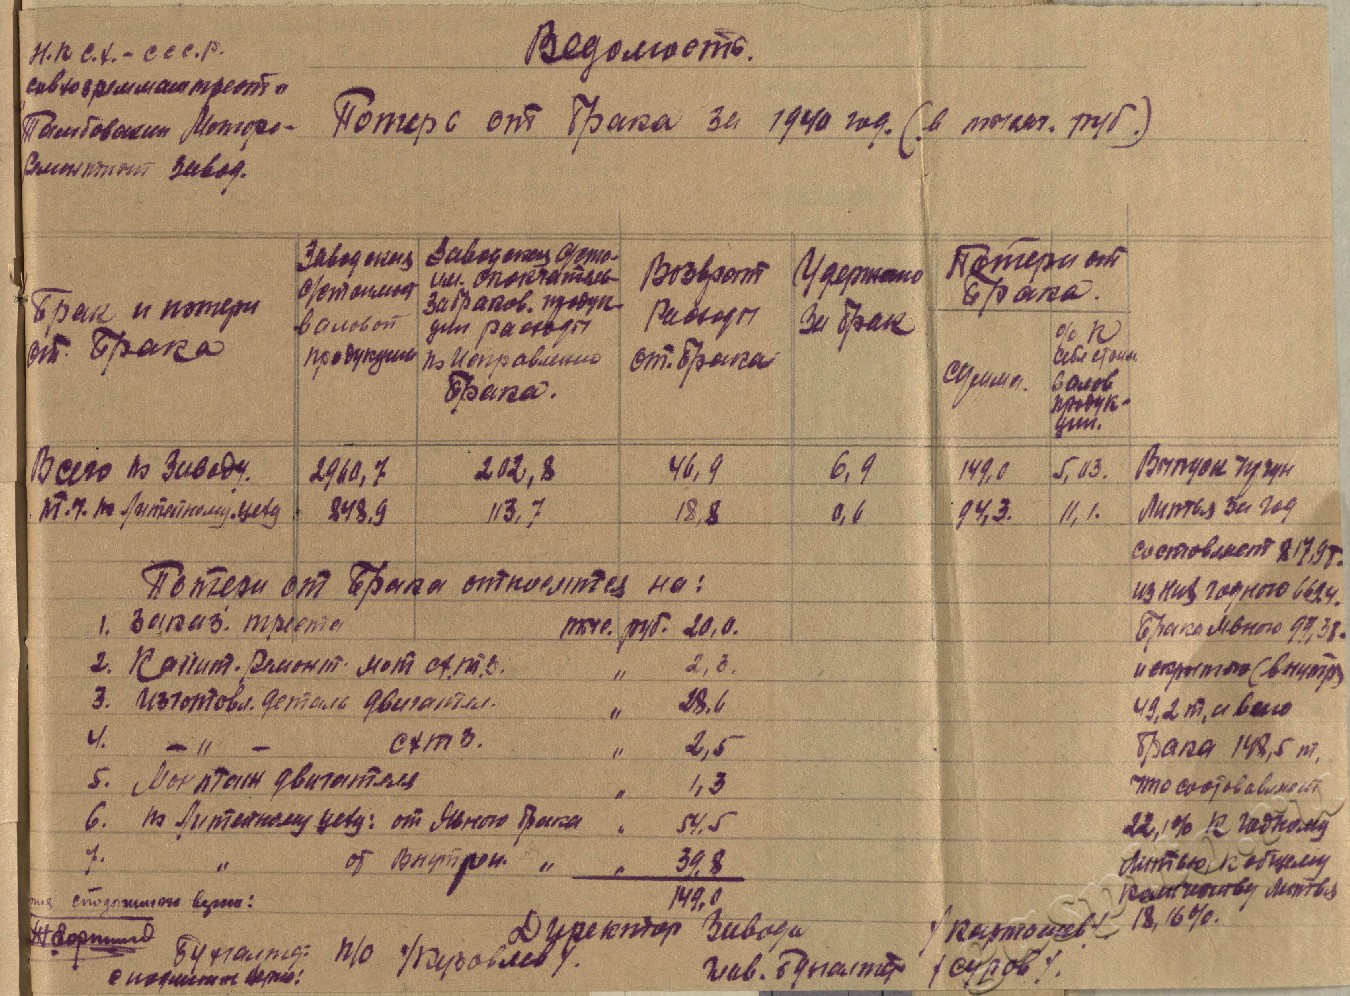 Н.К.С.Х. - С.С.С.Р.
Тамбовский Моторо-
Ремонтный завод.
Ведомость.
Потерь от Брака за 1940 год. (в тысяч. руб.)
Брак и потери
от Брака
Заводская
с/стоимост
валовой
продукции
Заводская с/сто-
им. окончатель-
забраков. продук-
ции расходы
по исправлению
Брака.
Возврат
Расходы
от. Брака
Удержано
За Брак
Потери от
Брака.
Сумма.
% к
себестоим.
валов
продук-
ции.
Всего по Заводу. 2960,7 202,8 46,9 6,9 149,0 5,03.
т.ч. по Литейному цеху 848,9 113,7 18,8 0,6 94,3. 11,1.
Выпуск чугун
Литья за год
составляет 817,9 т.
из них годного 662 т.
Брака явного 99,3 т.
и скрытого (внутр)
49,2 т, а всего
Брака 148,5 т.
что составляет
22,1% к годному
Литью, к общему
количеству литья
18,16%.
Потери от Брака относится на:
1. Заказ. треста тыс. руб. 20,0.
2. Капит. Ремонт. мот схтз. " 2,3.
3. Изготовл. деталь двигател. " 28.6
4. – " – схтз. " 2,5
5. Монтаж двигателя " 1,3
6. по Литейному цеху: от явного брака " 54,5
7. " от Внутрен. " " 39,8
149,0
с подлинным верно:
Директор Завода /Картошев/
Бухгалтер п/о /Кузовлев/.
Глав. Бухгалтер /Суров/.
с подлинным верно: